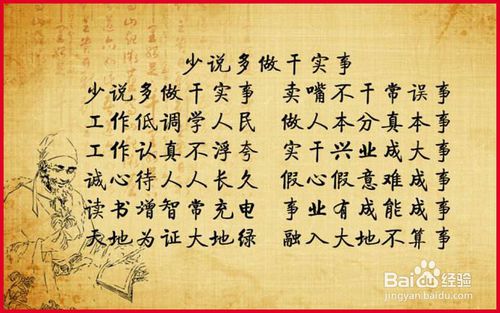 少说多做干实事
少说多做干实事 卖嘴不干常误事
工作低调学人民 做人本分真本事
工作认真不浮夸 实干兴业成大事
诚心待人人长久 假心假意难成事
读书增智常充电 事业有成能成事
天地为证大地绿 融入大地不算事
Baidu经验
jingyan.baidu.com